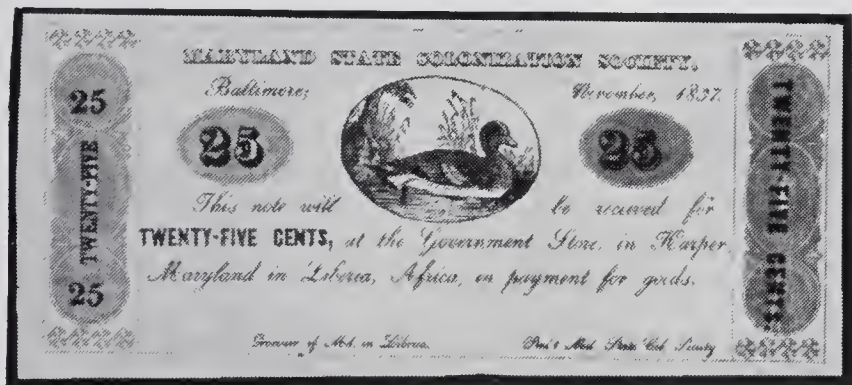 MARYLAND STATE COLONIZATION SOCIETY.
Baltimore, November, 1837.
25
TWENTY-FIVE
25
25
25
This note will be recieved for
TWENTY-FIVE CENTS, at the Government Store, in Harper,
Maryland in Liberia, Africa, in payment for goods.
Governor of Md. in Liberia.
Pres't Md. State Col. Society
TWENTY-FIVE CENTS.